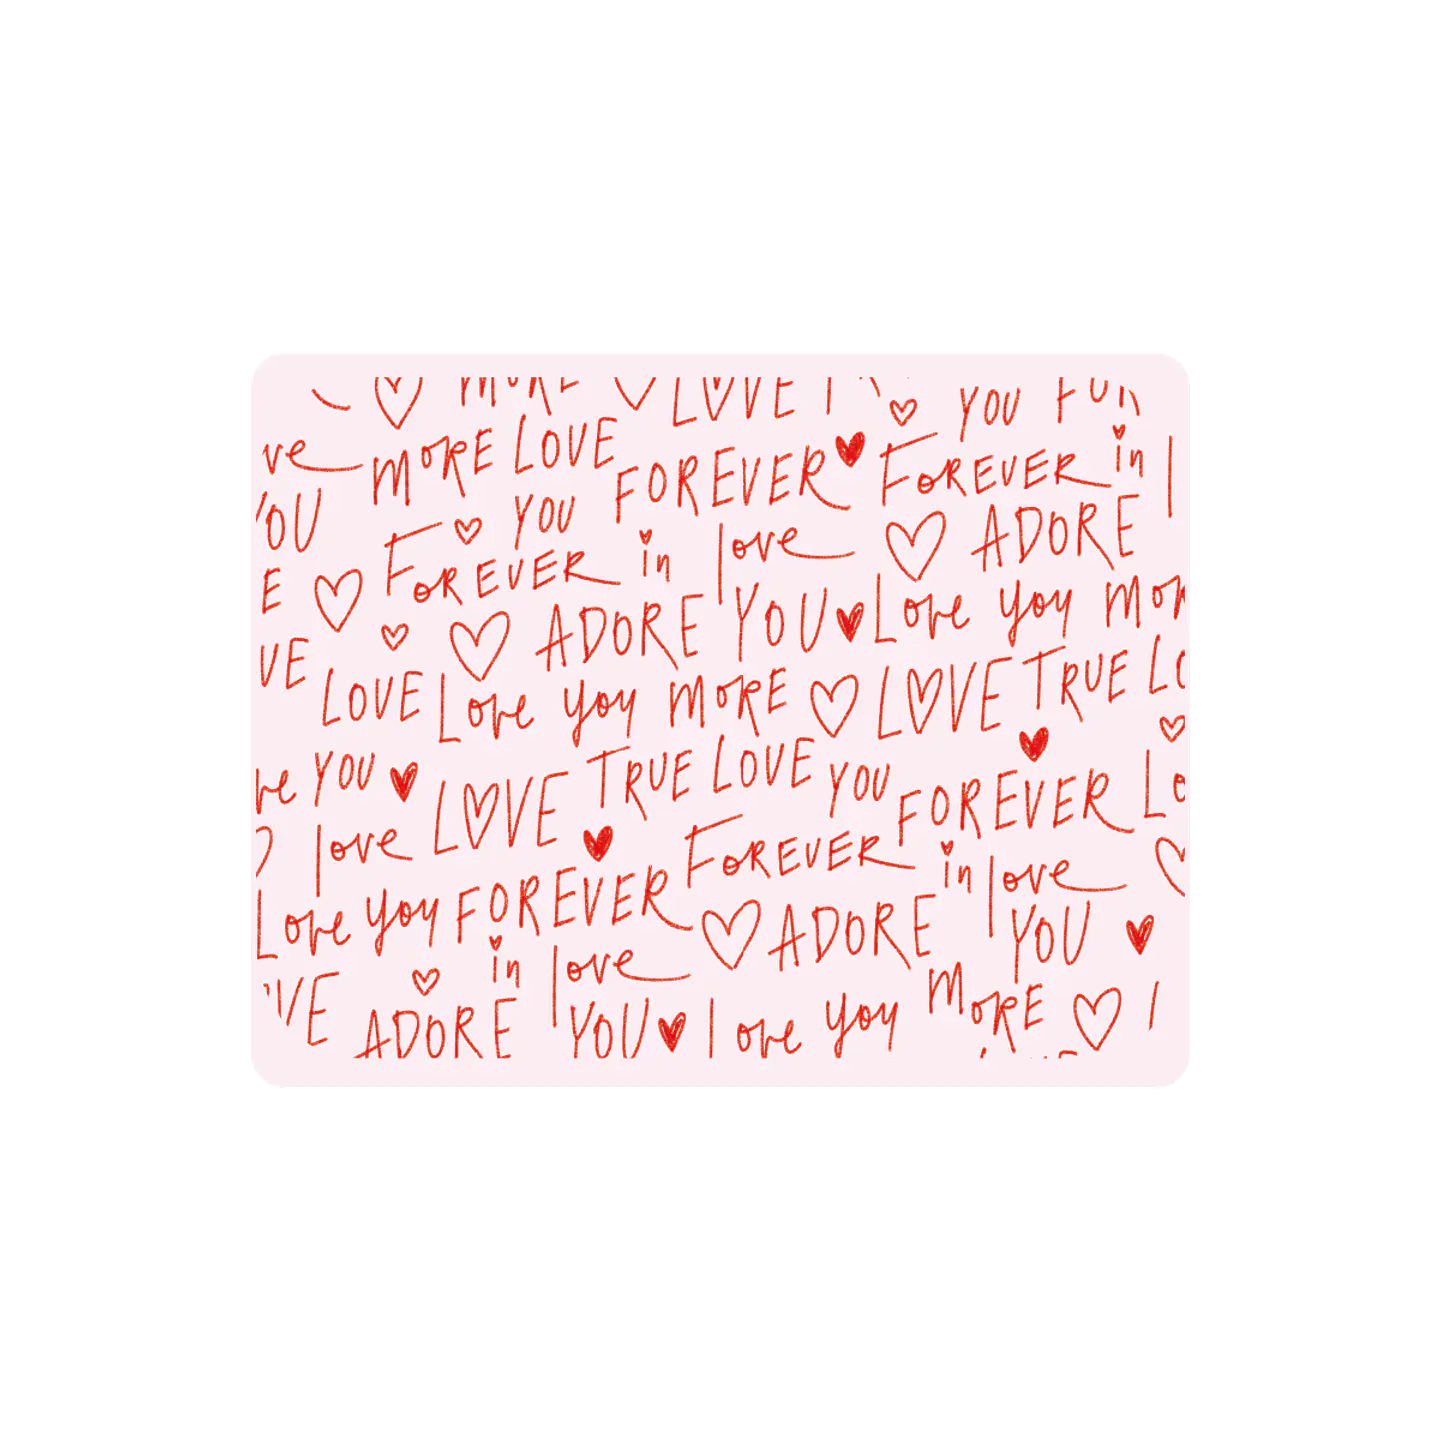 MORE LOVE
YOU
ve MORE LOVE FOREVER FOREVER in
OU YOU love ADORE
E FOREVER in
ADORE YOU Love you
VE LOVE Love you MORE LOVE TRUE
YOU LOVE TRUE LOVE YOU FOREVER
love FOREVER in love
Love you FOREVER ADORE YOU
in love
VE ADORE YOU love you MORE